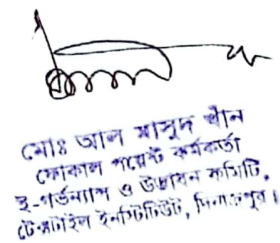 মোঃ আল মাসুদ খাঁন
ফোকাল পয়েন্ট কর্মকর্তা
ই-গর্ভন্যান্স ও উদ্ভাবন কমিটি,
টেক্সটাইল ইনস্টিটিউট, দিনাজপুর।